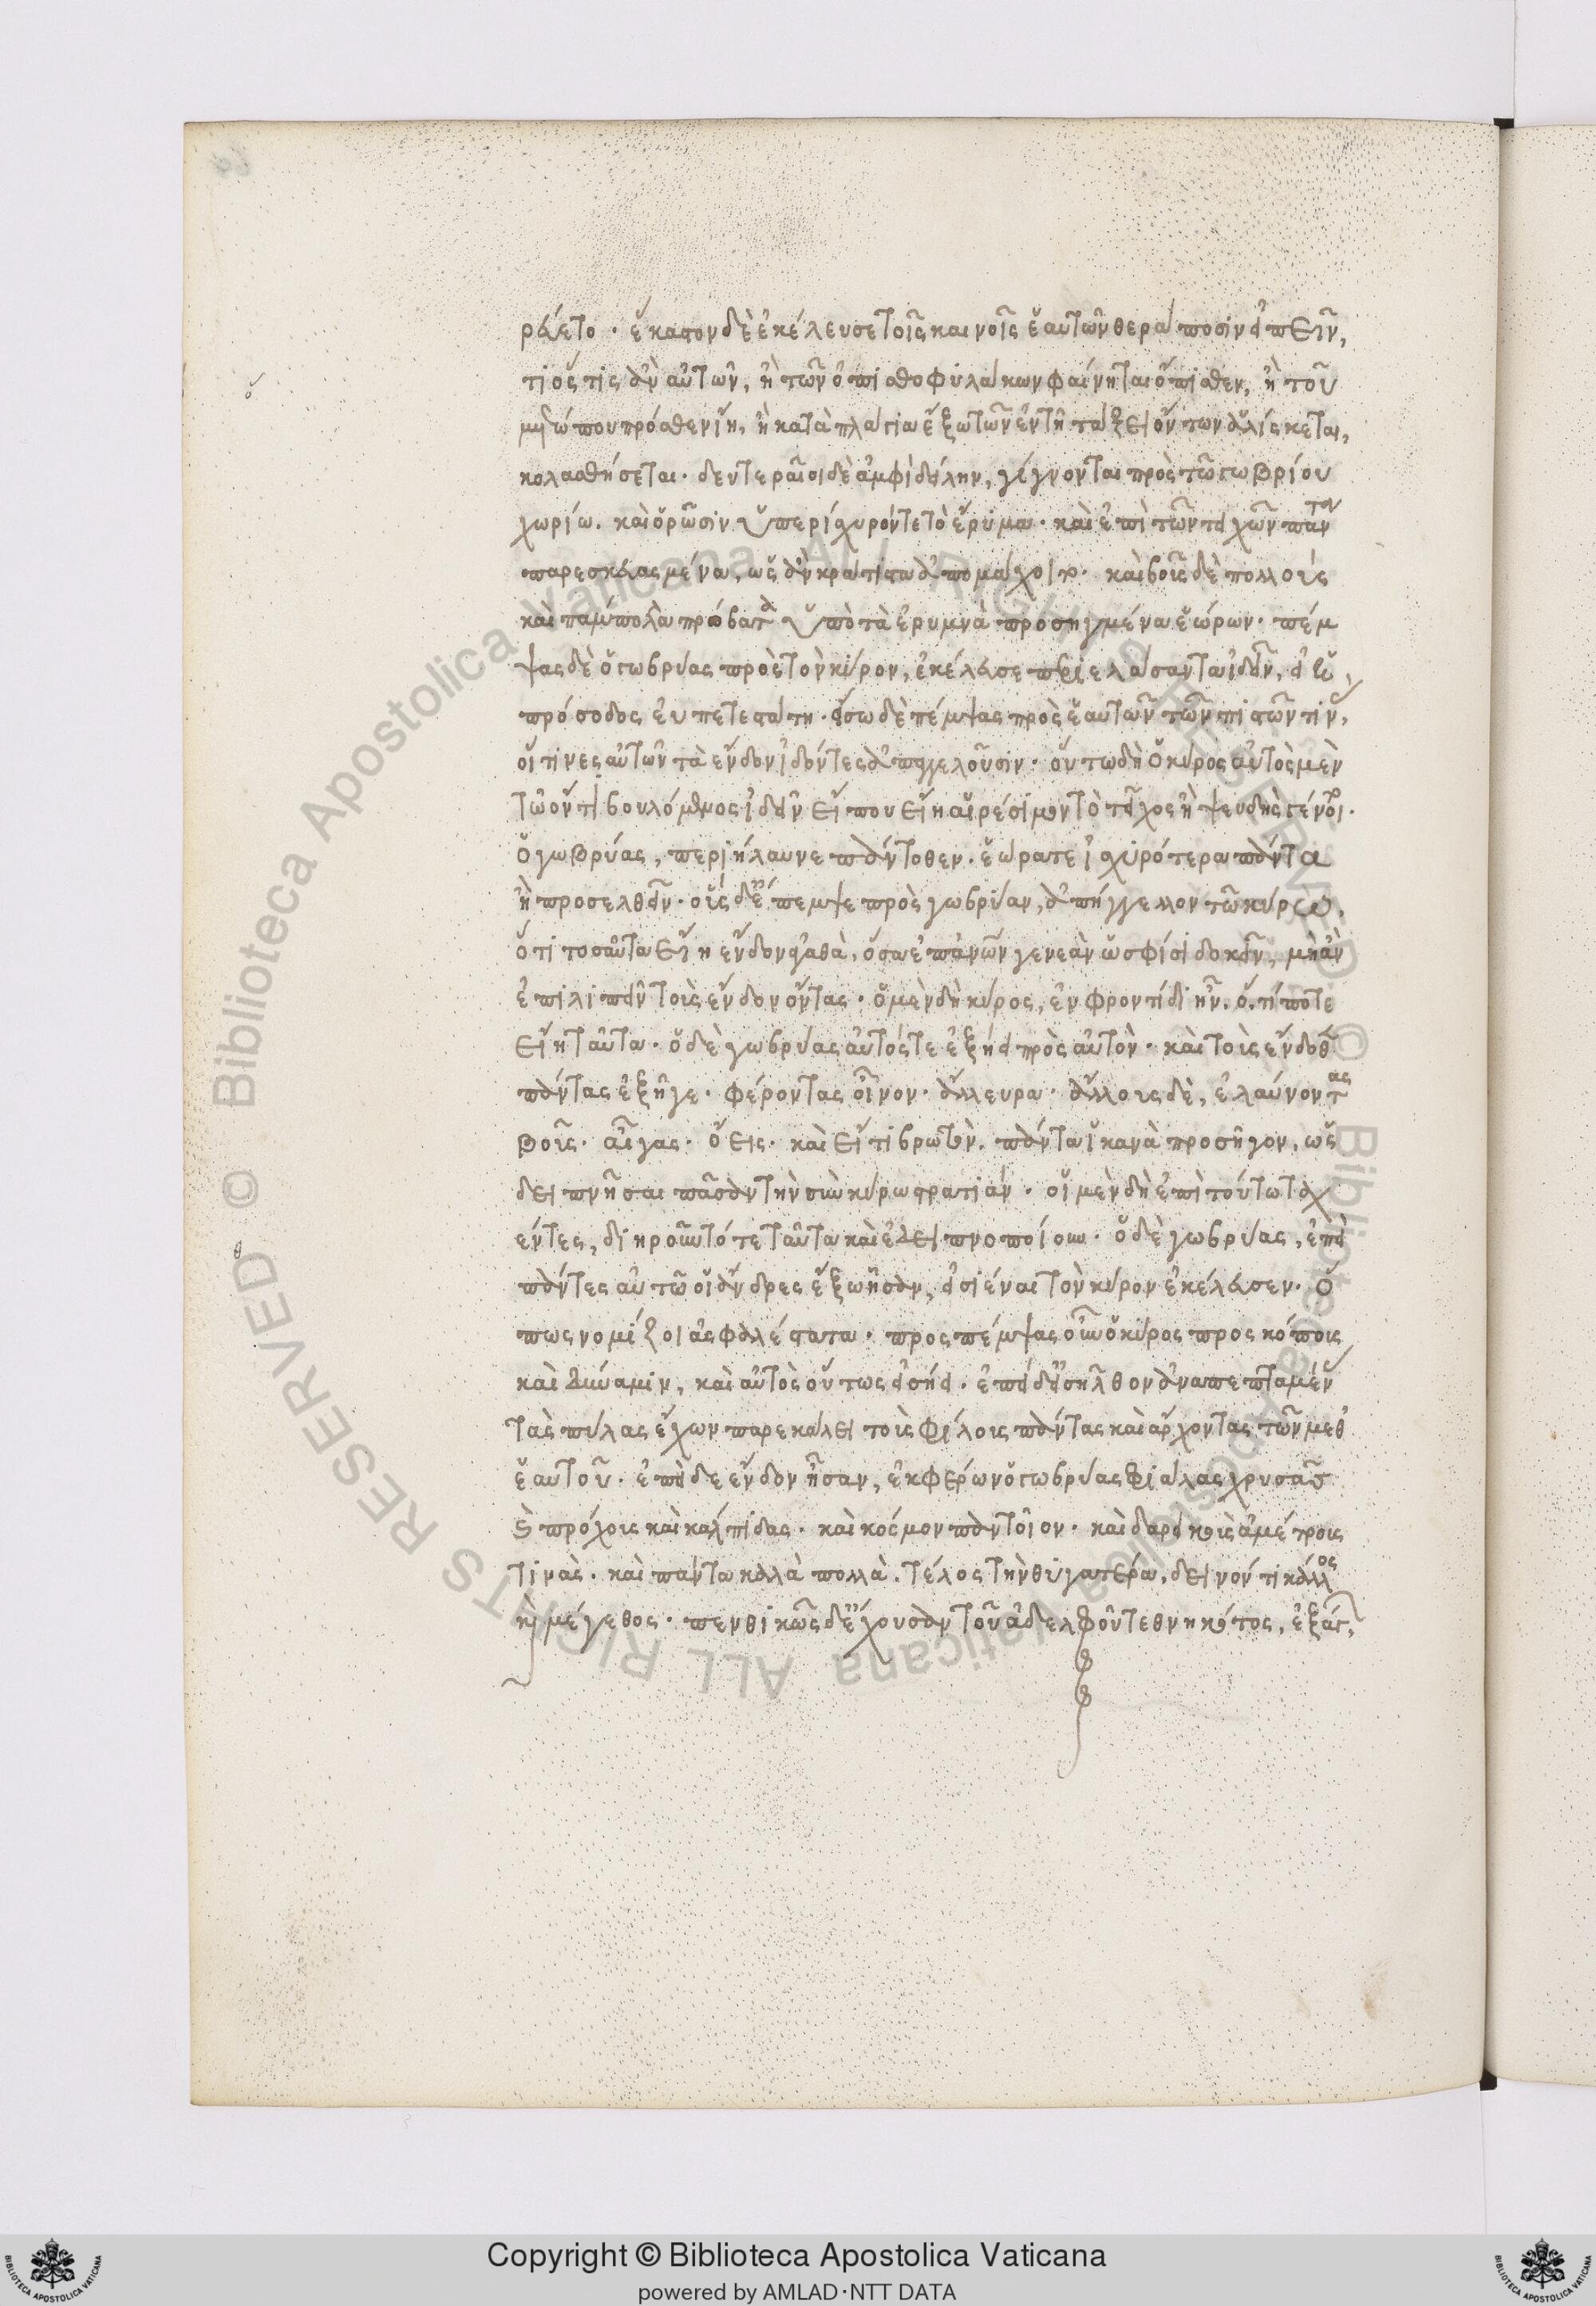 ρεύετο · ἕκαστον δὲ ἐκέλευσε τοῖς καινοῖς ἑαυτῶν θεράποσιν εἰπεῖν,
τι ὅστις ἂν αὐτῶν, ἢ τῶν ὀπισθοφυλάκων φαίνηται ὄπισθεν, ἢ τοῦ
μετώπου πρόσθεν ἴη, ἢ κατὰ πλάγια ἔξω τῶν ἐν τῆ τάξει ὄντων ἁλίσκεται,
κολασθήσεται · δευτεραῖοι δὲ ἀμφὶ δείλην, γίγνονται πρὸς τῶ γωβρίου
χωρίω. καὶ ὁρῶσιν ὑπερίσχυρόν τε τὸ ἔρυμα · καὶ ἐπὶ τῶν τειχῶν πάντα
παρεσκευασμένα, ὡς ἂν κράτιστα ἀπομάχοιτο · καὶ βοῦς δὲ πολλοὺς
καὶ παμπολλα πρόβατα ὑπὸ τὰ ἐρυμνὰ προσηγμένα ἑώρων · πέμ
ψας δὲ ὁ γωβρύας πρὸς τὸν κῦρον, ἐκέλευσε περιελάσαντα ἰδεῖν, εἰ ἡ
πρόσοδος εὐπετεστάτη · εἴσω δὲ πέμψας πρὸς ἑαυτὸν τῶν πιστῶν τινὰς,
οἵτινες αὐτῶν τὰ ἔνδον ἰδόντες ἀπαγγελοῦσιν · οὕτω δὴ ὁ κῦρος αὐτὸς μὲν
τῶ ὄντι βουλόμενος ἰδεῖν εἴ που εἴη αἱρέσιμον τὸ τεῖχος ἢ ψευδὴς γένοι ·
ὁ γωβρύας, περιήλαυνε πάντοθεν · ἑώρα τε ἰσχυρότερα πάντα
ἢ προσελθεῖν · οὓς δ' ἔπεμψε πρὸς γωβρύαν, ἀπήγγελλον τῶ κύρω,
ὅτι τοσαῦτα εἴη ἔνδον ἀγαθὰ, ὅσα ἐπ' ἀνθρώπων γενεὰν ὥς σφίσι δοκεῖν, μὴ ἂν
ἐπιλιπεῖν τοὺς ἔνδον ὄντας · ὁ μὲν δὴ κῦρος, ἐν φροντίδι ἦν, ὅ,τί ποτε
εἴη ταῦτα · ὁ δὲ γωβρύας αὐτός τε ἐξήει πρὸς αὐτὸν · καὶ τοὺς ἔνδοθεν
πάντας ἐξῆγε · φέροντας οἶνον · ἄλευρα · ἄλλους δὲ, ἐλαύνοντας
βοῦς · αἶγας · ὄεις · καὶ εἴ τι βρωτὸν, πάντα ἱκανὰ προσῆγον, ὡς
δειπνῆσαι πᾶσαν τὴν σὺν κύρω στρατιάν · οἱ μὲν δὴ ἐπὶ τούτω ταχ
έντες, διηροῦντό τε ταῦτα καὶ ἐδειπνοποίουν · ὁ δὲ γωβρύας, ἐπεὶ
πάντες αὐτῶ οἱ ἄνδρες ἔξω ἦσαν, εἰσιέναι τὸν κῦρον ἐκέλευσεν · ὅ
πως νομίζοι ἀσφαλέστατα · προσπέμψας οὖν ὁ κῦρος προσκόπους
καὶ δύναμιν, καὶ αὐτὸς οὕτως εἰσήει · ἐπεὶ δ' εἰσῆλθον ἀναπεπταμένας
τὰς πύλας ἔχων παρεκάλει τοὺς φίλους πάντας καὶ ἄρχοντας τῶν μεθ'
ἑαυτοῦ · ἐπεὶ δὲ ἔνδον ἦσαν, ἐκφέρων ὁ γωβρύας φιάλας χρυσᾶς
καὶ πρόχους καὶ κάλπιδας · καὶ κόσμον παντοῖον · καὶ δαρεικοὺς ἀμέτρους
τινὰς · καὶ πάντα καλὰ πολλὰ · τέλος τὴν θυγατέρα, δεινόν τι κάλλος
καὶ μέγεθος · πενθικῶς δ' ἔχουσαν τοῦ ἀδελφοῦ τεθνηκότος, ἐξάγων